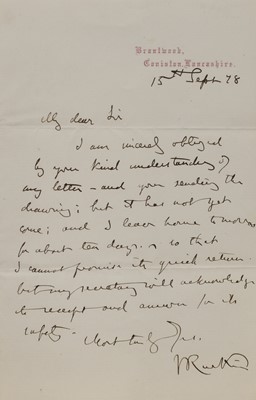 Brantwood,
Coniston, Lancashire.
15th Sept 78
My dear Sir
I am sincerely obliged
by your kind understanding of
my letter – and your sending the
drawing; but it has not yet
come; and I leave home tomorrow
for about ten days. so that
I cannot promise its quick return.
but my secretary will acknowledge
its receipt and answer for its
safety –
Most truly Yrs.
J Ruskin